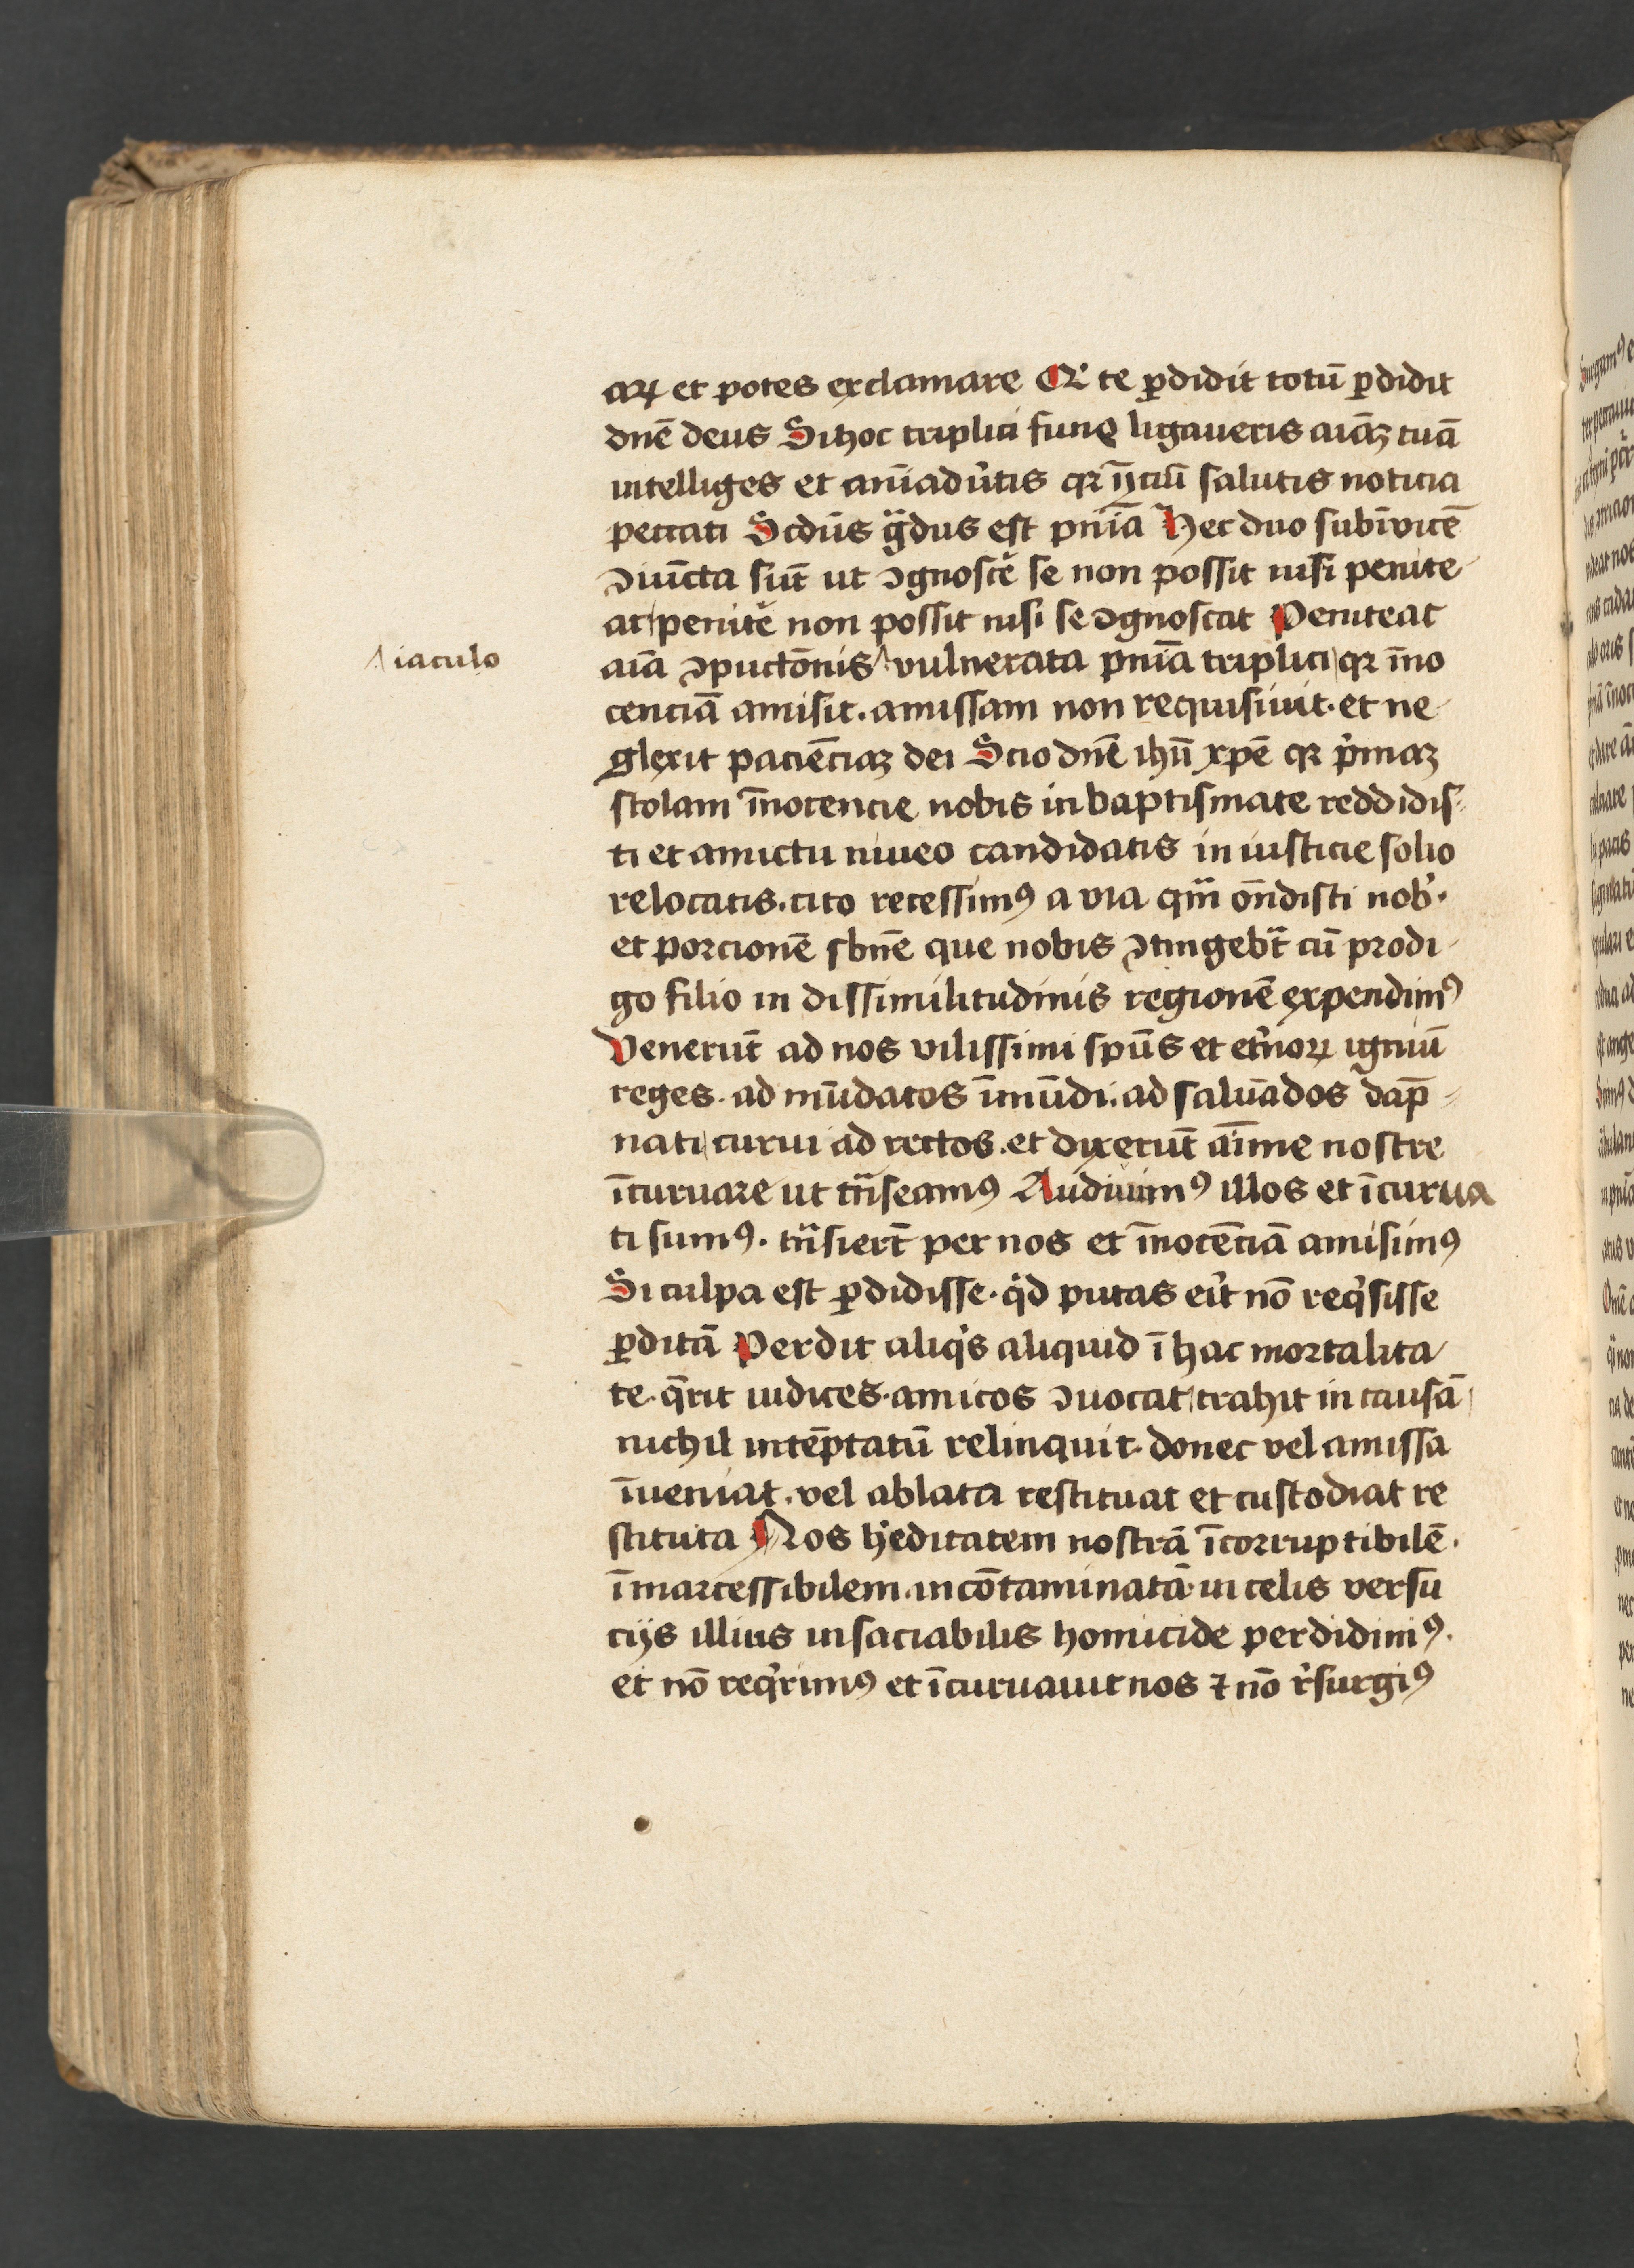 aꝝ et potes exclamare Qꝛ te ꝑdidit totū ꝑdidit
dnē deus Si hoc triplici funē ligaueris aīaꝫ tuā
intelliges et aniaduͥtis qꝛ īcīū salutis noticia
peccati Scdūs gͣdus est pnīa Hec duo subīuicē
ꝯiūcta sūt ut ꝯgnosce᷑ se non possit nisi penite
at penite᷑ non possit nisi se ꝯgnoscat Peniteat
aīa ꝯpuctōnis vulnerata pnīa triplici qꝛ īno
iaculo
cenciā amisit. amissam non requisiuit. et ne
glexit paciēciaꝫ dei Scio dnē ihū xpē qꝛ pͥmaꝫ
stolam īnocencie nobis in baptismate reddidis
ti et amictu niueo candidatis in iusticie solio
relocatis. cito recessimꝰ a via qͣm on̄disti nob᷑.
et porcionē sbn̄e que nobis ꝯtingebͣt cū prodi
go filio in dissimilitudinis regionē expendimꝰ
Venerūt ad nos vilissimi spūs et et᷑noꝝ igniū
reges. ad mūdatos īmūdi. ad saluādos dap̄
nati curui ad rectos. et dixerūt aīme nostre
īcuruare ut tͣnseamꝰ Audiuimꝰ illos et īcurua
ti sumꝰ. tͣnsiert̄ per nos et īnocēciā amisimꝰ
Si culpa est ꝑdidisse. qͥd putas erͥt nō reqͥsisse
ꝑditā Perdit aliqͥs aliquid ī hac mortalita
te. q̄rit iudices. amicos ꝯuocat trahit in causā
nichil intēptatū relinquit. donec vel amissa
īueniat. vel ablata restituat et custodiat re
stituta Nos h᷑editatem nostrā īcorruptibilē.
īmarcessibilem. incōtaminatā. in celis versu
cijs illius insaciabilis homicide perdidimꝰ.
et nō reqͥrimꝰ et īcuruauit nos ⁊ nō r᷑surgiꝰ